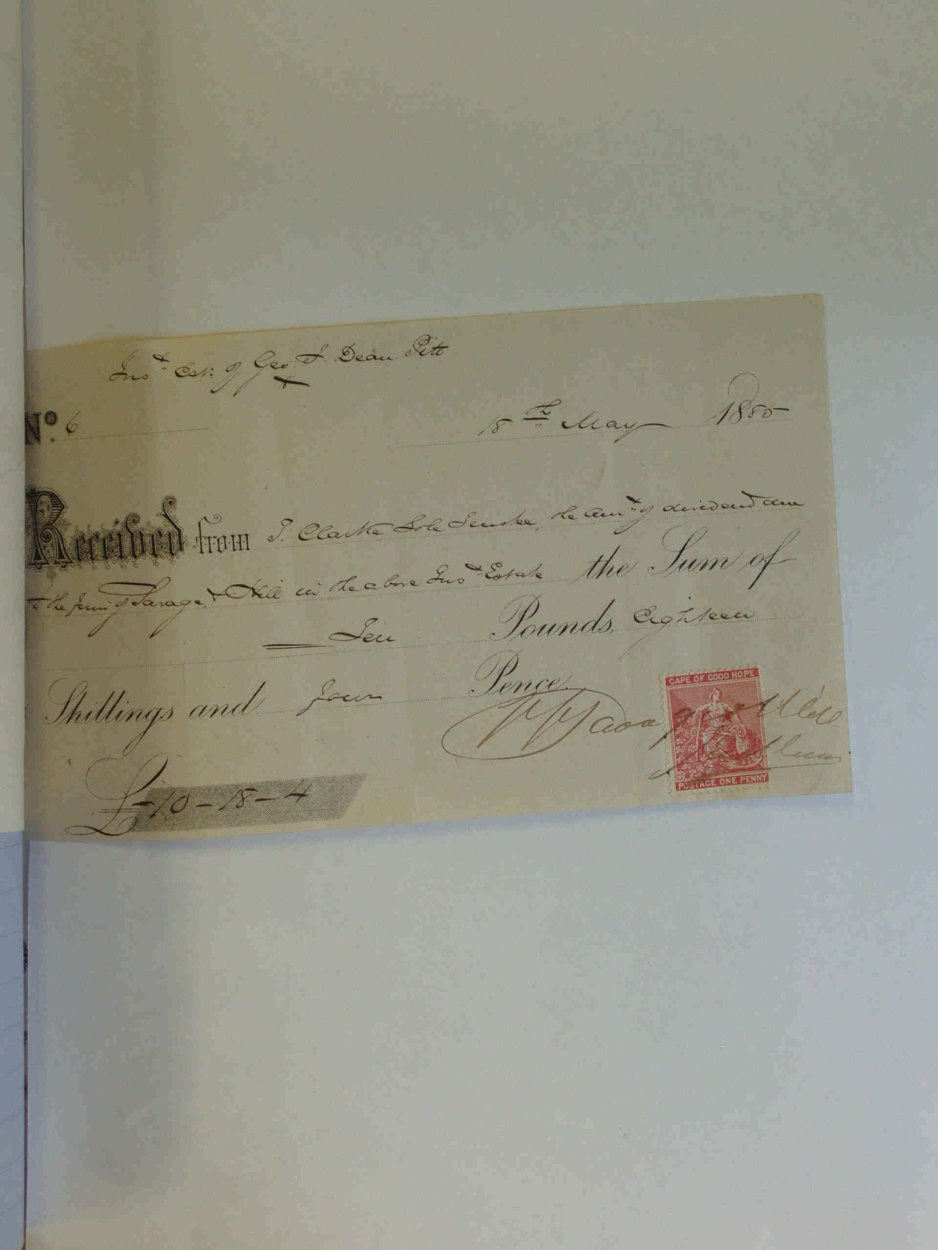 Inst Est: of Geo. T Dean Pitt
No. 6
18th May 1885
Received from J. Clarke Sole Trustee, the amt of dividend due
to the firm of Savage & Hill in the above Inst Estate the Sum of
Ten Pounds, Eighteen
Shillings and four Pence
CAPE OF GOOD HOPE
POSTAGE ONE PENNY
Savage & Hill
£-10-18-4